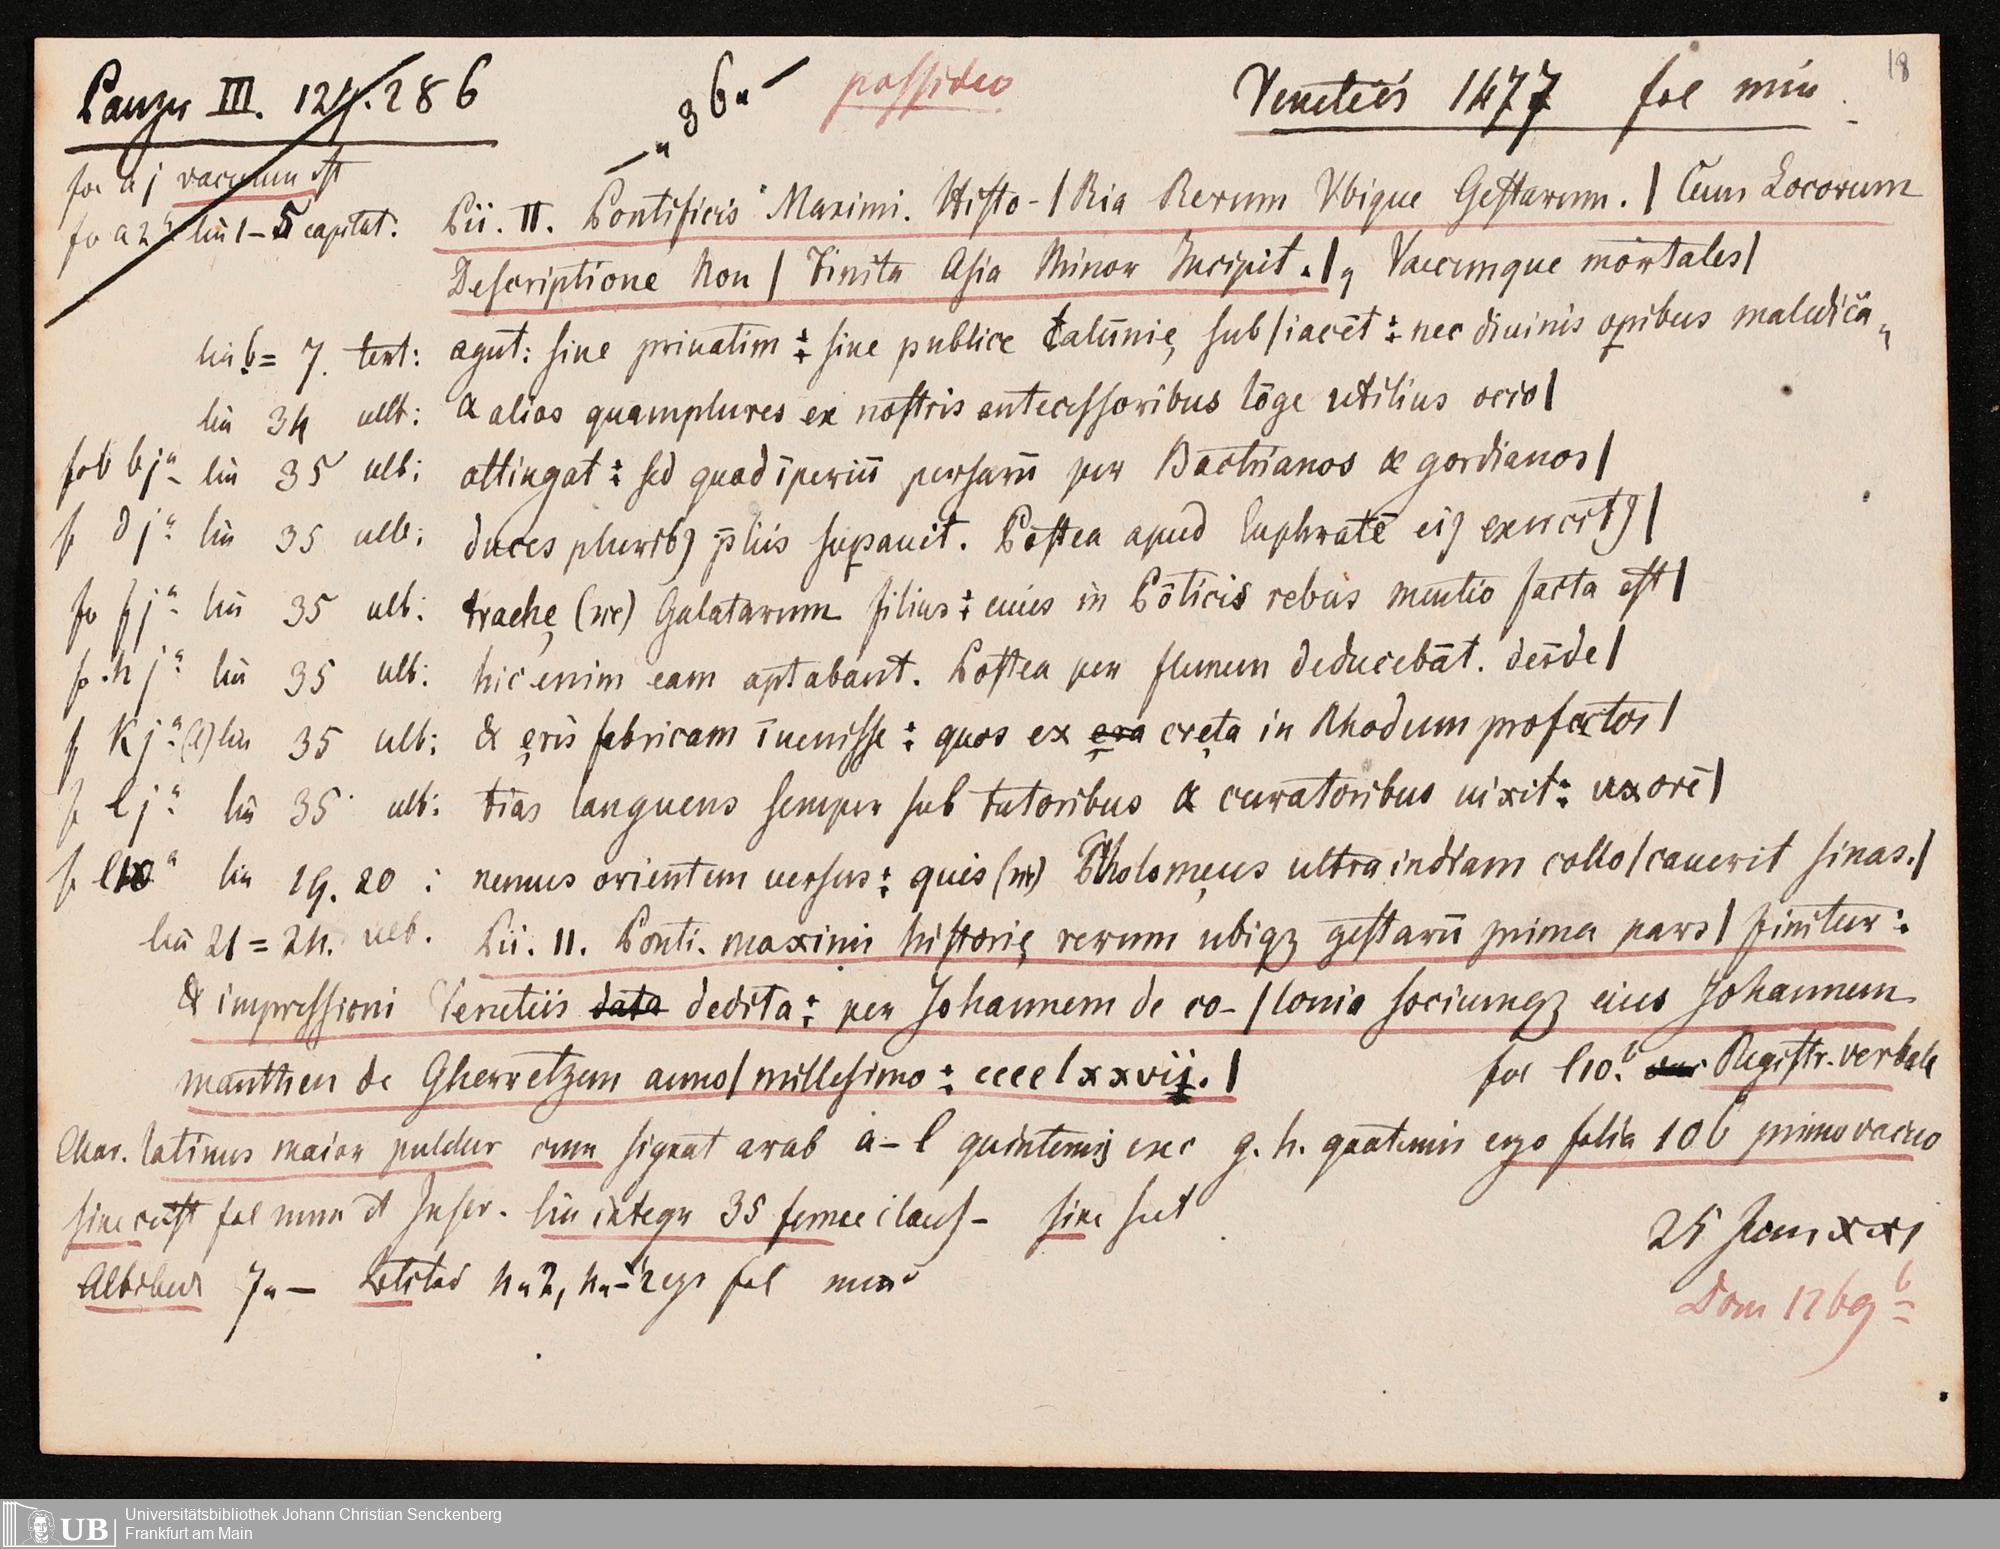 18
Panzer III. 124. 286 „36„— possideo Venetiis 1477 fol min.
fol a j vacuum est
fo a 2 a lin 1–5 capitat. Pii. II. Pontificis Maximi. Histo-|Ria Rerum Vbique Gestarum.| Cum Locorum
Descriptione Non | Finita Asia Minor Incipit.| Vaecunque mortales|
lin 6= 7. text: agut: siue priuatim: siue publice calūnię sub|iacēt: nec diuinis opibus maledicā„
lin 34 ult: & alios quamplures ex nostris antecessoribus lōge utilius ocio|
fol b j a lin 35 ult: attingat: sed quod īperiū persarū per Bactrianos & gordianos|
f d j a lin 35 ult: duces pluribꝫ p̄liis supauit. Postea apud Euphratē eiꝫ exercitꝫ|
fo f j a lin 35 ult: trachę (sic) Galatarum filius: cuius in Pōticis rebus mentio facta est|
fo h j a lin 35 ult: hic enim eam aptabant. Postea per flumen deducebāt. deīde|
f K j a lin 35 ult: & ęris fabricam īuenisse: quos ex era cręta in Rhodum profectos|
f l j a lin 35 ult: tias languens semper sub tutoribus & curatoribus uixit: uxorē|
f l10 a lin 19. 20: nemus orientem uersus: quis (sic) Ptholomęus ultra indiam collo|cauerit sinas.|
lin 21=24. ult. Pii. II. Ponti. maximi historię rerum ubiqꝫ gestarū prima pars| finitur:
& impressioni Venetiis data dedita: per Johannem de co-|lonia sociumqꝫ eius Johannem
manthen de Gherretzem anno| millesimo: cccclxxvij.| fol l10. b Registr. verbale
Char. latinus maior pulcher cum signat arab a–l quinternis exc g. h. quaternis ergo folia 106 primo vacuo
sine cust fol num et Inscr. lin integr 35 sine
7„— 4„2, fol min
25 Jun xxi
Dom 1269 b
Universitätsbibliothek Johann Christian Senckenberg
Frankfurt am Main
UB